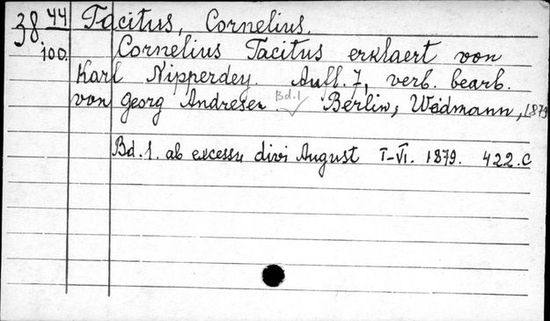 38. 44/100. Tacitus, Cornelius.
Cornelius Tacitus erklaert von
Karl Nipperdey. Aufl. 7, verb. bearb.
von Georg Andresen Bd.1 Berlin, Weidmann, 1879
Bd. 1. ab excessu divi August I-VI. 1879. 422.c